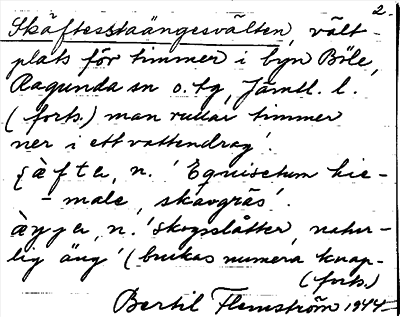 2.
Skäftesstaängesvälten, vält-
plats för timmer i byn Böle,
Ragunda sn o. tg, Jämtl. l.
(forts.) man rullar timmer
ner i ett vattendrag'.
ʃàfte, n. 'Equisetum hie-
- male, skavgräs'.
n. 'skogsslåtter, natur-
lig äng' (brukas numera knap-
(forts.)
Bertil Flemström 1944